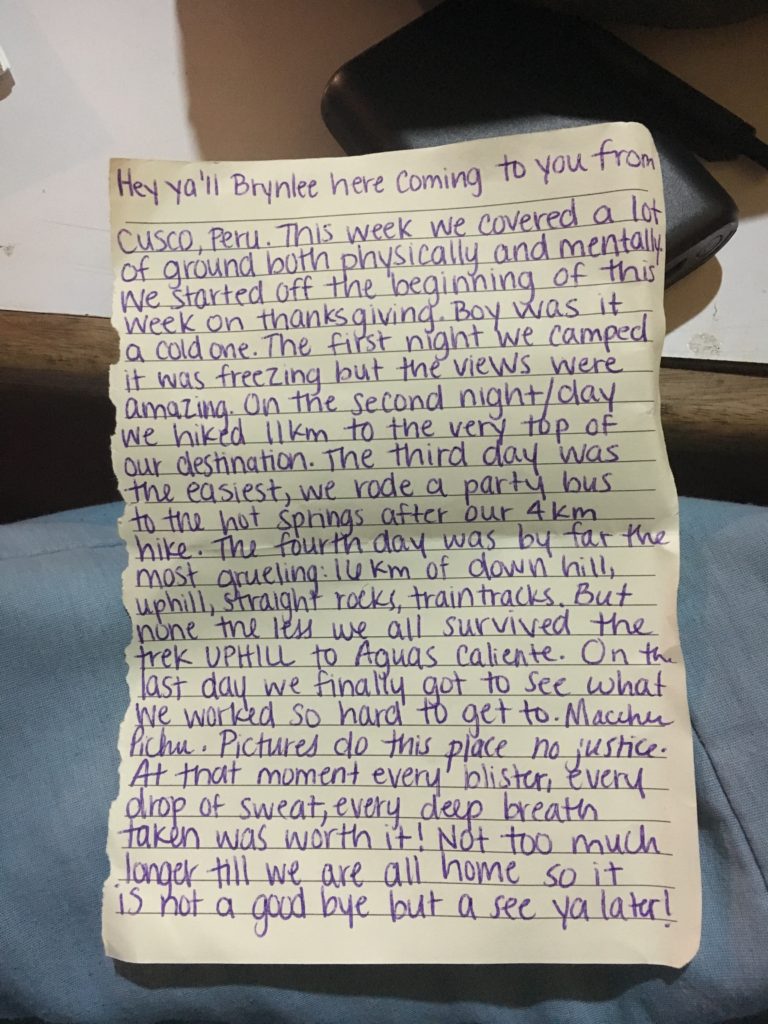 Hey ya'll Brynlee here coming to you from
Cusco, Peru. This week we covered a lot
of ground both physically and mentally.
We started off the beginning of this
week on thanksgiving. Boy was it
a cold one. The first night we camped
it was freezing but the views were
amazing. On the second night/day
we hiked 11km to the very top of
our destination. The third day was
the easiest, we rode a party bus
to the hot springs after our 4km
hike. The fourth day was by far the
most grueling: 16km of down hill,
uphill, straight rocks, train tracks. But
none the less we all survived the
trek UPHILL to Aguas Caliente. On the
last day we finally got to see what
we worked so hard to get to. Macchu
Pichu. Pictures do this place no justice.
At that moment every blister, every
drop of sweat, every deep breath
taken was worth it! Not too much
longer till we are all home so it
is not a good bye but a see ya later!